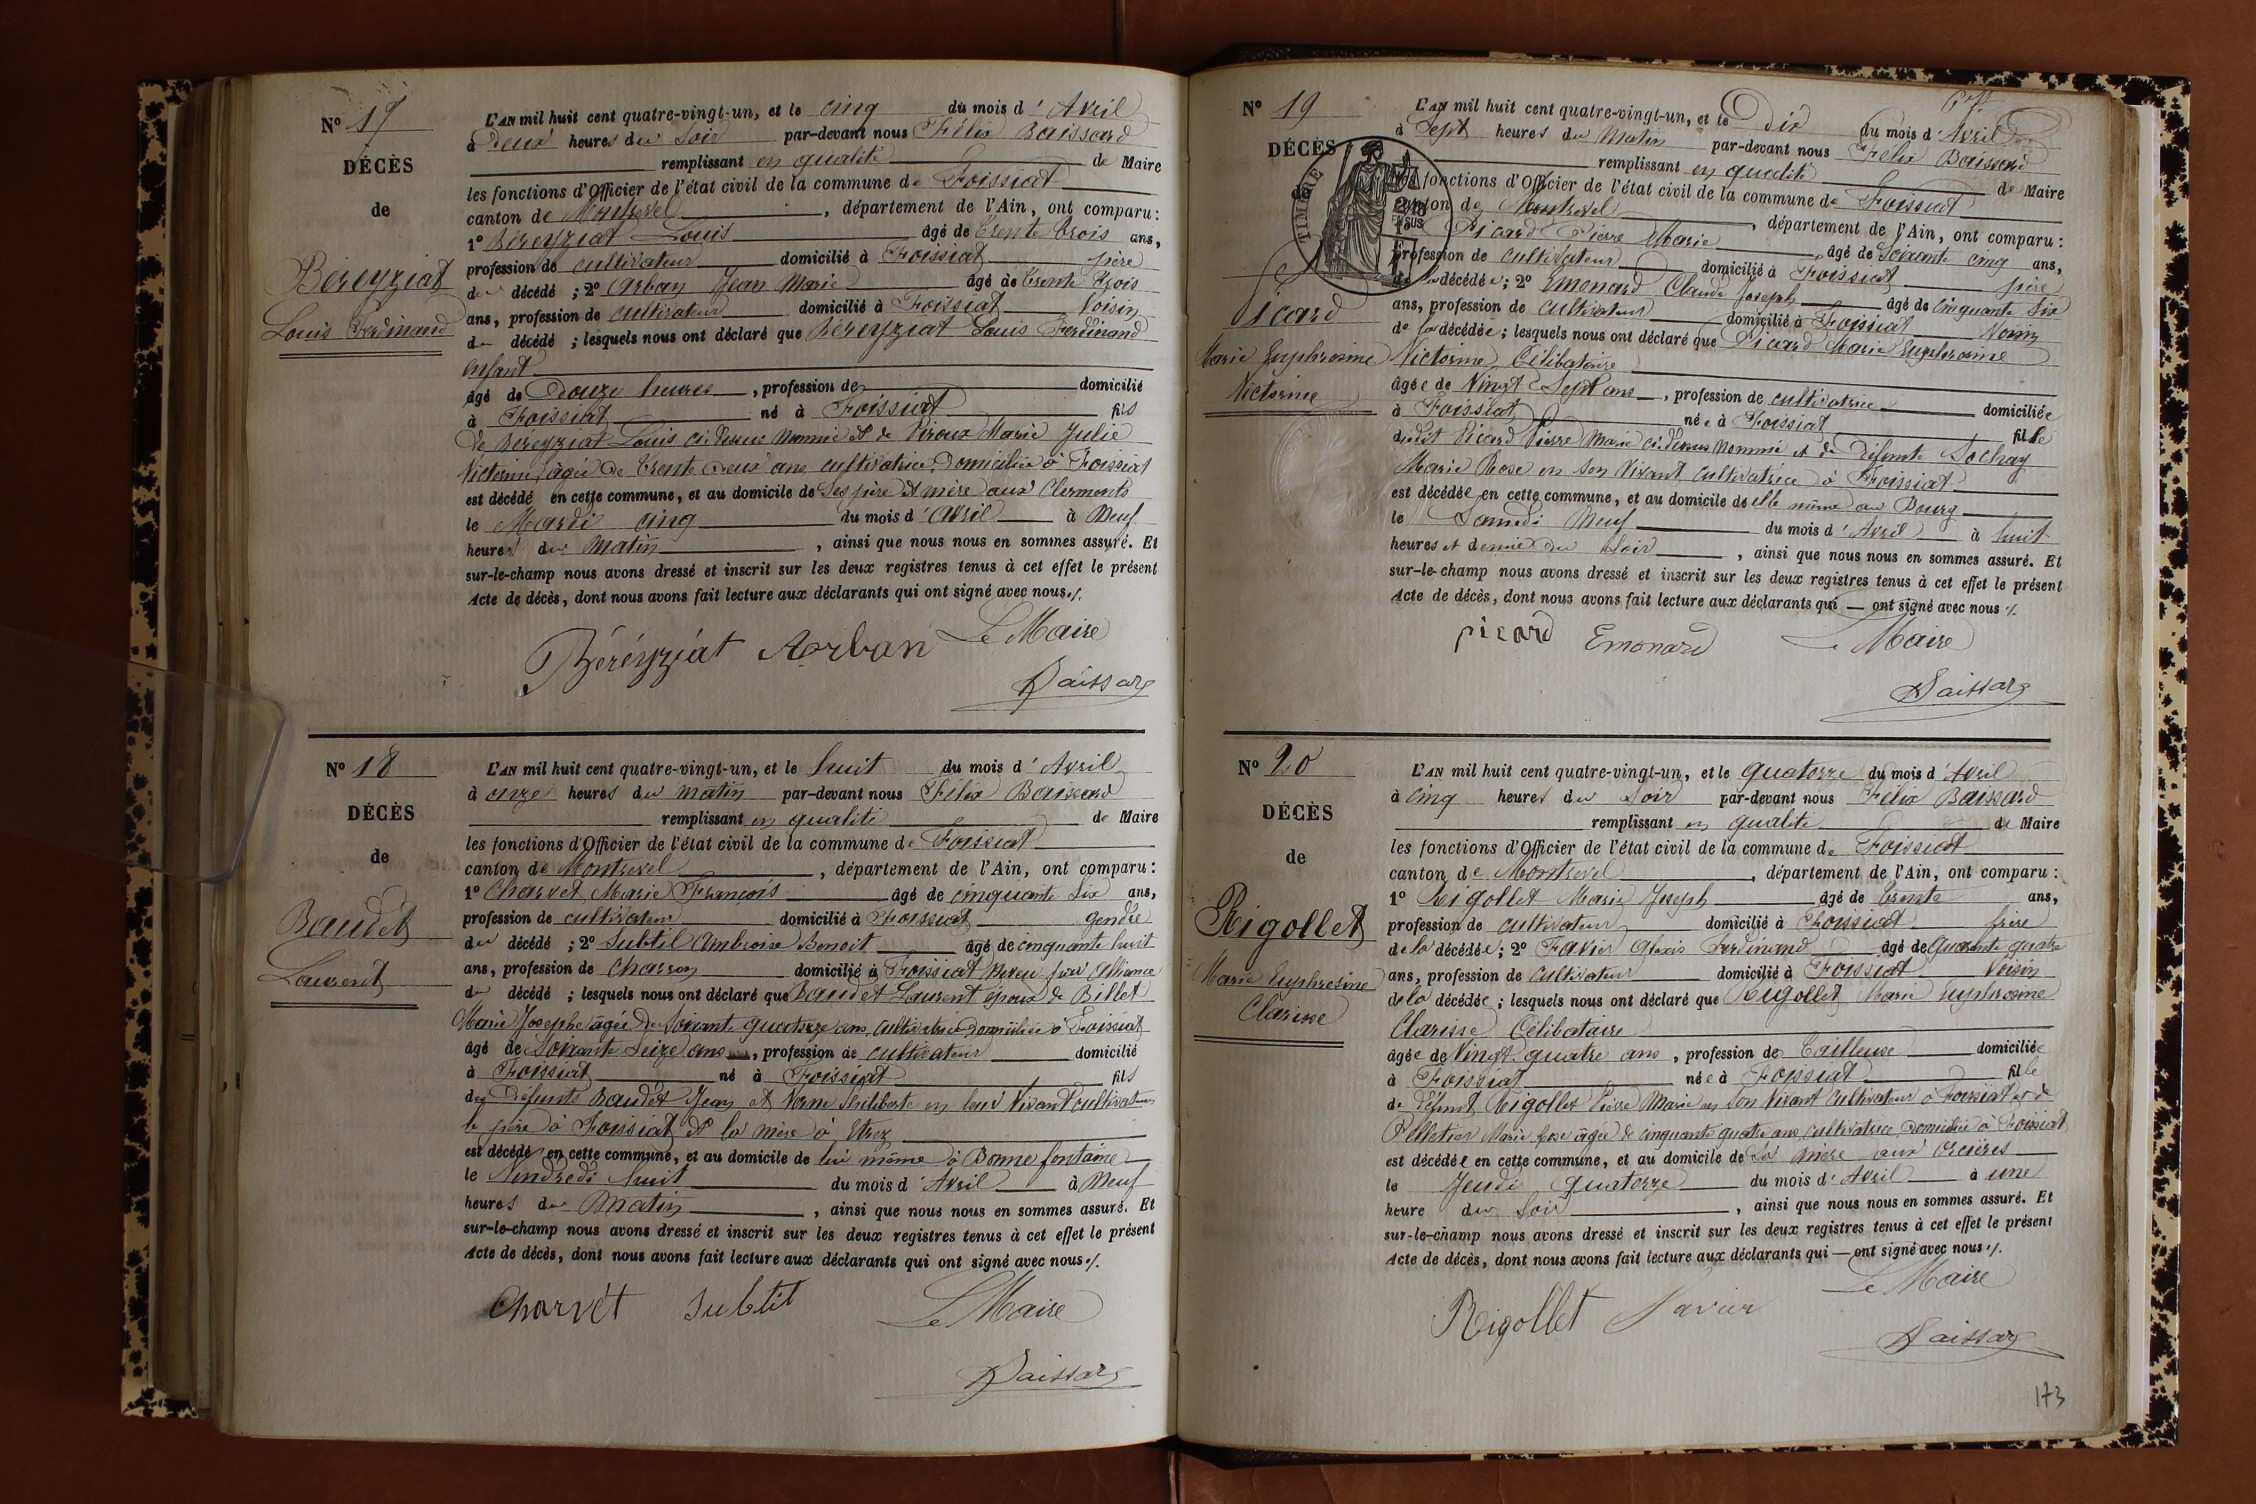 N° 17
DÉCÈS
de
Béreyziat
Louis Ferdinand
L'AN mil huit cent quatre-vingt-un, et le cinq du mois d'Avril
à Deux heures du Soir par-devant nous Félix Baissard
remplissant en qualité de Maire
les fonctions d'Officier de l'état civil de la commune de Foissiat
canton de Montrevel, département de l'Ain, ont comparu :
1° Béreyziat Louis âgé de trente trois ans,
profession de cultivateur domicilié à Foissiat père
du décédé ; 2° Arban Jean Marie âgé de trente trois
ans, profession de cultivateur domicilié à Foissiat Voisin
du décédé ; lesquels nous ont déclaré que Béreyziat Louis Ferdinand
enfant
âgé de Douze heures, profession de domicilié
à Foissiat né à Foissiat fils
de Béreyziat Louis ci dessus nommé et de Piroux Marie Julie
Victorine, âgée de trente deux ans cultivatrice, domiciliée à Foissiat
est décédé en cette commune, et au domicile de ses père et mère aux Clermonts
le Mardi cinq du mois d'Avril à Neuf
heures du Matin, ainsi que nous nous en sommes assuré. Et
sur-le-champ nous avons dressé et inscrit sur les deux registres tenus à cet effet le présent
Acte de décès, dont nous avons fait lecture aux déclarants qui ont signé avec nous ./.
Béréyziat Arban Le Maire
Baissard
N° 18
DÉCÈS
de
Baudet
Laurent
L'AN mil huit cent quatre-vingt-un, et le huit du mois d'Avril
à onze heures du matin par-devant nous Félix Baissard
remplissant en qualité de Maire
les fonctions d'Officier de l'état civil de la commune de Foissiat
canton de Montrevel, département de l'Ain, ont comparu :
1° Charvet Marie François âgé de cinquante six ans,
profession de cultivateur domicilié à Foissiat gendre
du décédé ; 2° Subtil Ambroise Benoit âgé de cinquante huit
ans, profession de charron domicilié à Foissiat Neveu par alliance
du décédé ; lesquels nous ont déclaré que Baudet Laurent époux de Billet
Marie Josephe âgée de Soixante quatorze ans, cultivatrice domiciliée à Foissiat
âgé de Soixante Seize ans, profession de cultivateur domicilié
à Foissiat né à Foissiat fils
des défunts Baudet Jean et Philiberte en leur vivant cultivateurs
le père à Foissiat et la mère à Etrez
est décédé en cette commune, et au domicile de lui même à Bonne fontaine
le Vendredi huit du mois d'Avril à Neuf
heures du Matin, ainsi que nous nous en sommes assuré. Et
sur-le-champ nous avons dressé et inscrit sur les deux registres tenus à cet effet le présent
Acte de décès, dont nous avons fait lecture aux déclarants qui ont signé avec nous ./.
Charvét Subtil Le Maire
Baissard
N° 19
DÉCÈS
de
Picard
Marie Euphrosine
Victorine
TIMBRE
L'AN mil huit cent quatre-vingt-un, et le Dix du mois d'Avril
à Sept heures du Matin par-devant nous Félix Baissard
remplissant en qualité de Maire
les fonctions d'Officier de l'état civil de la commune de Foissiat
canton de Montrevel, département de l'Ain, ont comparu :
1° Picard Pierre Marie âgé de Soixante cinq ans,
profession de cultivateur domicilié à Foissiat père
de la décédée ; 2° Emonard Claude Joseph âgé de cinquante six
ans, profession de cultivateur domicilié à Foissiat Voisin
de la décédée ; lesquels nous ont déclaré que Picard Marie Euphrosine
Victorine Célibataire
âgée de Vingt Sept ans, profession de cultivatrice domiciliée
à Foissiat née à Foissiat fille
dudit Picard Pierre Marie ci dessus nommé et de défunte Sochay
Marie Rose en son vivant cultivatrice à Foissiat
est décédée en cette commune, et au domicile de elle même au Bourg
le Samedi Neuf du mois d'Avril à huit
heures et demie du Soir, ainsi que nous nous en sommes assuré. Et
sur-le-champ nous avons dressé et inscrit sur les deux registres tenus à cet effet le présent
Acte de décès, dont nous avons fait lecture aux déclarants qui — ont signé avec nous ./.
picard Emonard Le Maire
Baissard
N° 20
DÉCÈS
de
Rigollet
Marie Euphrosine
Clarisse
L'AN mil huit cent quatre-vingt-un, et le quatorze du mois d'Avril
à cinq heures du Soir par-devant nous Félix Baissard
remplissant en qualité de Maire
les fonctions d'Officier de l'état civil de la commune de Foissiat
canton de Montrevel, département de l'Ain, ont comparu :
1° Rigollet Marie Joseph âgé de trente ans,
profession de cultivateur domicilié à Foissiat frère
de la décédée ; 2° Favier Alexis Ferdinand âgé de Quarante quatre
ans, profession de cultivateur domicilié à Foissiat Voisin
de la décédée ; lesquels nous ont déclaré que Rigollet Marie Euphrosine
Clarisse Célibataire
âgée de Vingt quatre ans, profession de tailleuse domiciliée
à Foissiat née à Foissiat fille
de défunt Rigollet Pierre Marie en son vivant cultivateur à Foissiat et de
Pelletier Marie Rose âgée de cinquante quatre ans, cultivatrice, domiciliée à Foissiat
est décédée en cette commune, et au domicile de sa mère aux
le Jeudi quatorze du mois d'Avril à une
heure du Soir, ainsi que nous nous en sommes assuré. Et
sur-le-champ nous avons dressé et inscrit sur les deux registres tenus à cet effet le présent
Acte de décès, dont nous avons fait lecture aux déclarants qui — ont signé avec nous ./.
Rigollet Favier Le Maire
Baissard
173